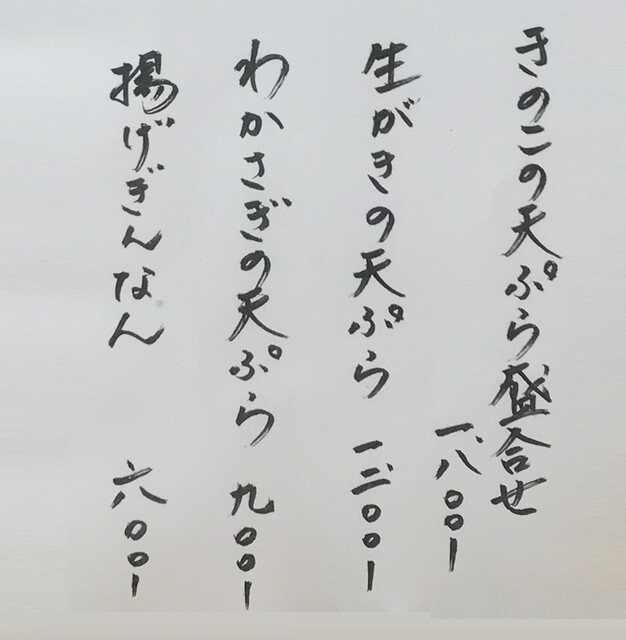 きのこの天ぷら盛合せ
一、八〇〇ー
生がきの天ぷら 一、二〇〇ー
わかさぎの天ぷら 九〇〇ー
揚げぎんなん 六〇〇ー